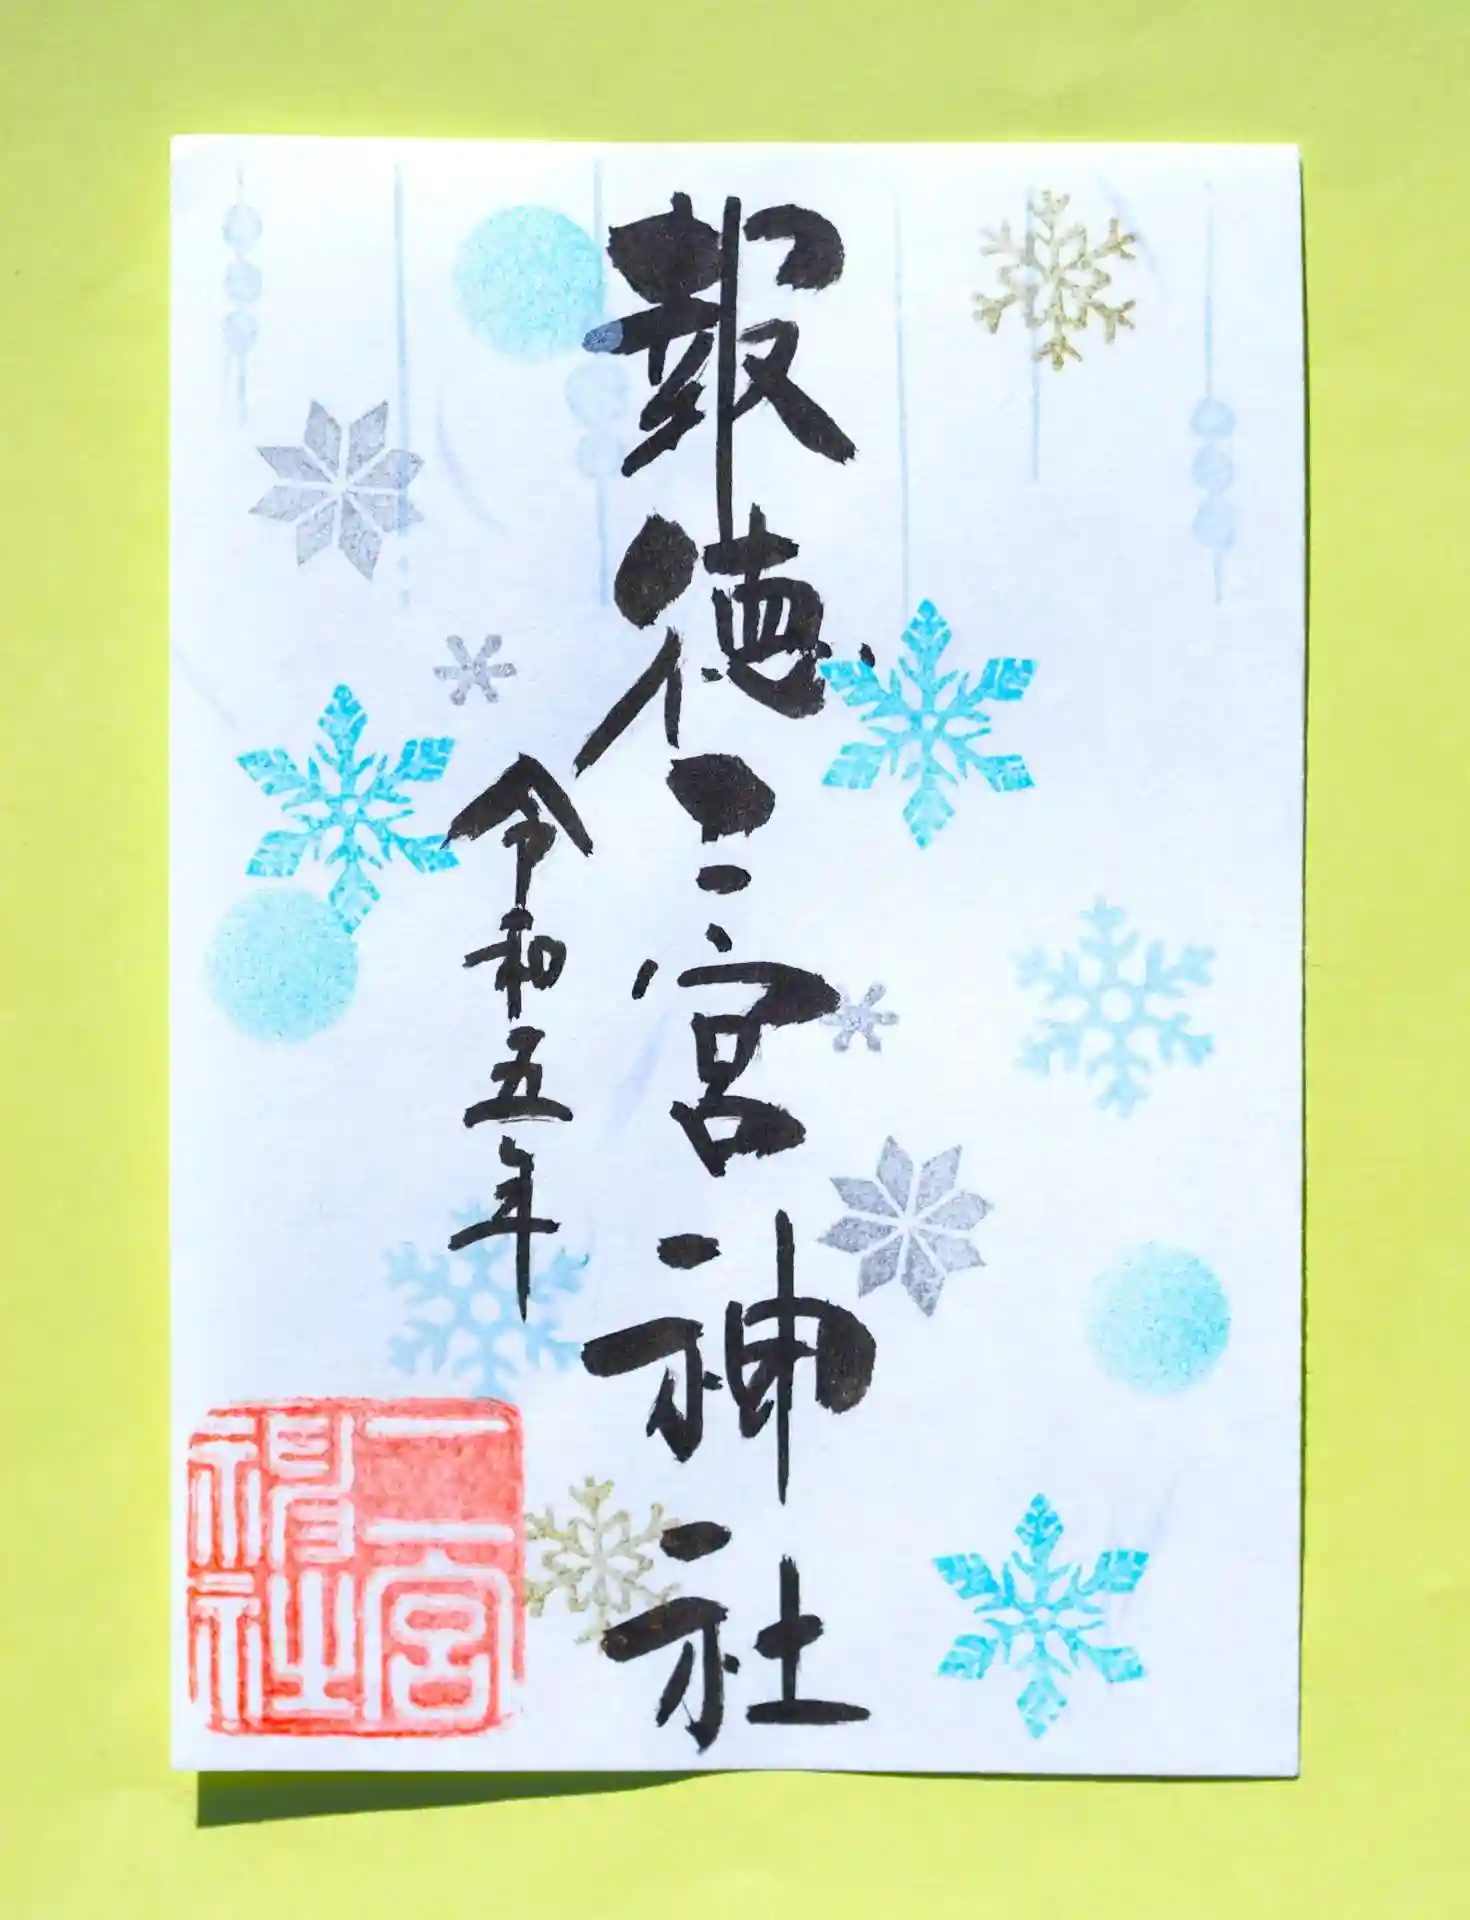 報徳二宮神社
令和五年
二宮
神社